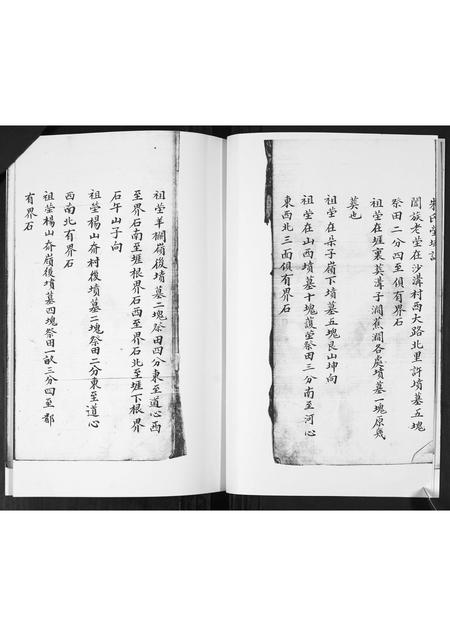 朱氏塋墳記
闔族老塋在沙溝村西大路北里許墳墓五塊
祭田二分四至俱有界石
祖塋在堐裏英溝子澗蕉澗各處墳墓一塊原幾
塟也
祖塋在朵子嶺下墳墓五塊艮山坤向
祖塋在山西墳墓十塊護塋祭田三分南至河心
東西北三面俱有界石
祖塋羊欄嶺後墳墓二塊祭田四分東至道心西
至界石南至堐根界石西至界石北至堐下根界
石午山子向
祖塋楊山夼村後墳墓二塊祭田二分東至道心
西南北有界石
祖塋楊山夼嶺後墳墓四塊祭田一畝三分四至都
有界石